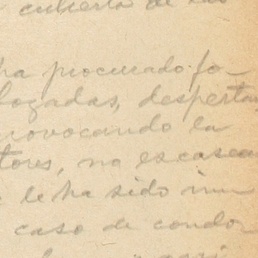 cubierta de las
ha procurado fo-
logadas, desperta
rovocando la
tores, no escasea
le ha sido inu
caso de condor